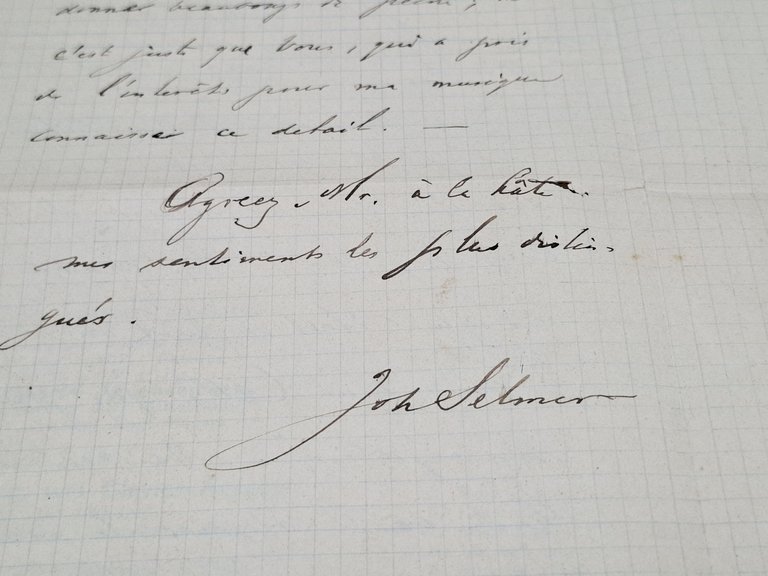 donner beaucoup de peine,
c'est juste que Vous, qui a pris
de l'interêts pour ma musique
connaissez ce detail. —
Agreez Mr. à la hâte
mes sentiments les plus distin-
gués.
Joh Selmer